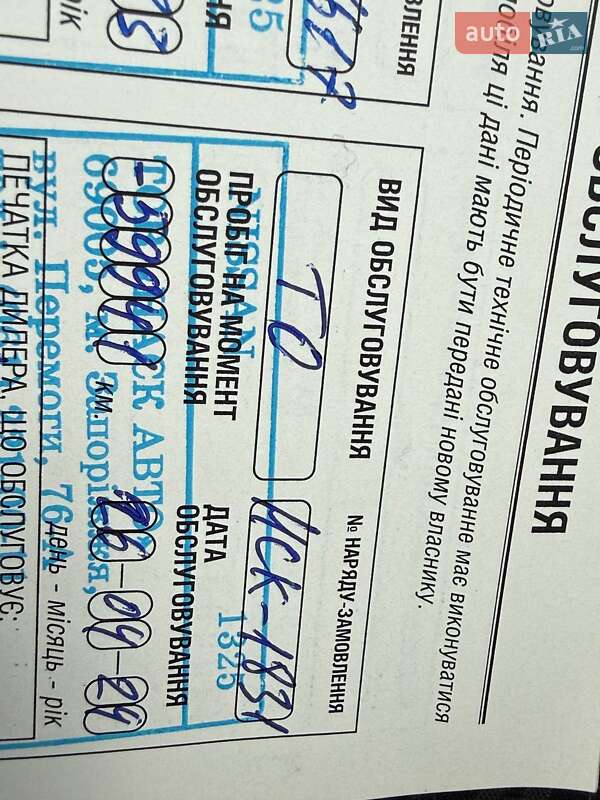 auto RIA .com
ОБСЛУГОВУВАННЯ
Періодичне технічне обслуговуванне має виконуватися
ці дані мають бути передані новому власнику.
ВИД ОБСЛУГОВУВАННЯ
№ НАРЯДУ-ЗАМОВЛЕННЯ
ТО
ИСК-1831
NISSAN
1325
ПРОБІГ НА МОМЕНТ ОБСЛУГОВУВАННЯ
ДАТА ОБСЛУГОВУВАННЯ
км.
26-04-24
день - місяць - рік
69005, м. Запоріжжя,
вул. Перемоги, 76А
ПЕЧАТКА ДИЛЕРА, ЩО ОБСЛУГОВУЄ:
рік
25